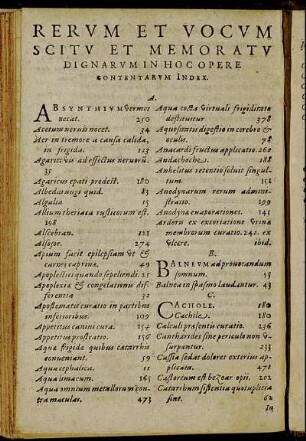 RERVM ET VOCVM
SCITV ET MEMORATV
DIGNARVM IN HOC OPERE
CONTENTARVM INDEX.
A.
ABSYNTHIVM vermes
necat. 250
Acetum neruis nocet. 34
Aer in tremore a causa calida,
in frigida. 133
Agaricus ad effectus neruorũ.
35
Agaricus epati prodest. 180
Albedarungi quid. 83
Algulia 15
Allium theriaca rusticorum est.
308
Alscebran. 123
Alsosor. 274
Apium facit epilepsiam &
carnes captiuæ. 49
Apoplectici quando sepeliendi. 21
Apoplexia & congelationis dif-
ferentia 32
Apostematis curatio in partibus
inferioribus. 109
Appetitus canini cura. 154
Appetitus prostratio. 150
Aqua frigida quibus catarrhis
conueniant. 59
Aqua cephalica. 11
Aqua limacum. 165
Aqua omnium metallorum con-
tra maculas. 473
Aqua costa virtuali frigiditate
destituitur. 378
Aquositatis digestio in cerebro &
oculis. 78
Anacardi fructus applicatio. 260
Andachoche. 188
Anhelitus retentio soluit singul-
tum. 152
Anodynarum rerum admini-
stratio. 299
Anodyna euaporationes. 141
Ardens ex excoriatione
membrorum curatio. 241. ex
vlcere. ibid.
B.
BALNEVM ad prouocandum
somnum. 15
Balnea in spasmo laudantur. 43
C.
CACHOLE. 180
Cachile. 180
Calculi præsentis curatio. 236
Cantharides sine periculo non v-
surpantur. 233
Cassia sedat dolores exterius ap-
plicata. 471
Castoreum est bezear opii. 202
Catarrhum sistentia quotuplicia
sint. 62
In